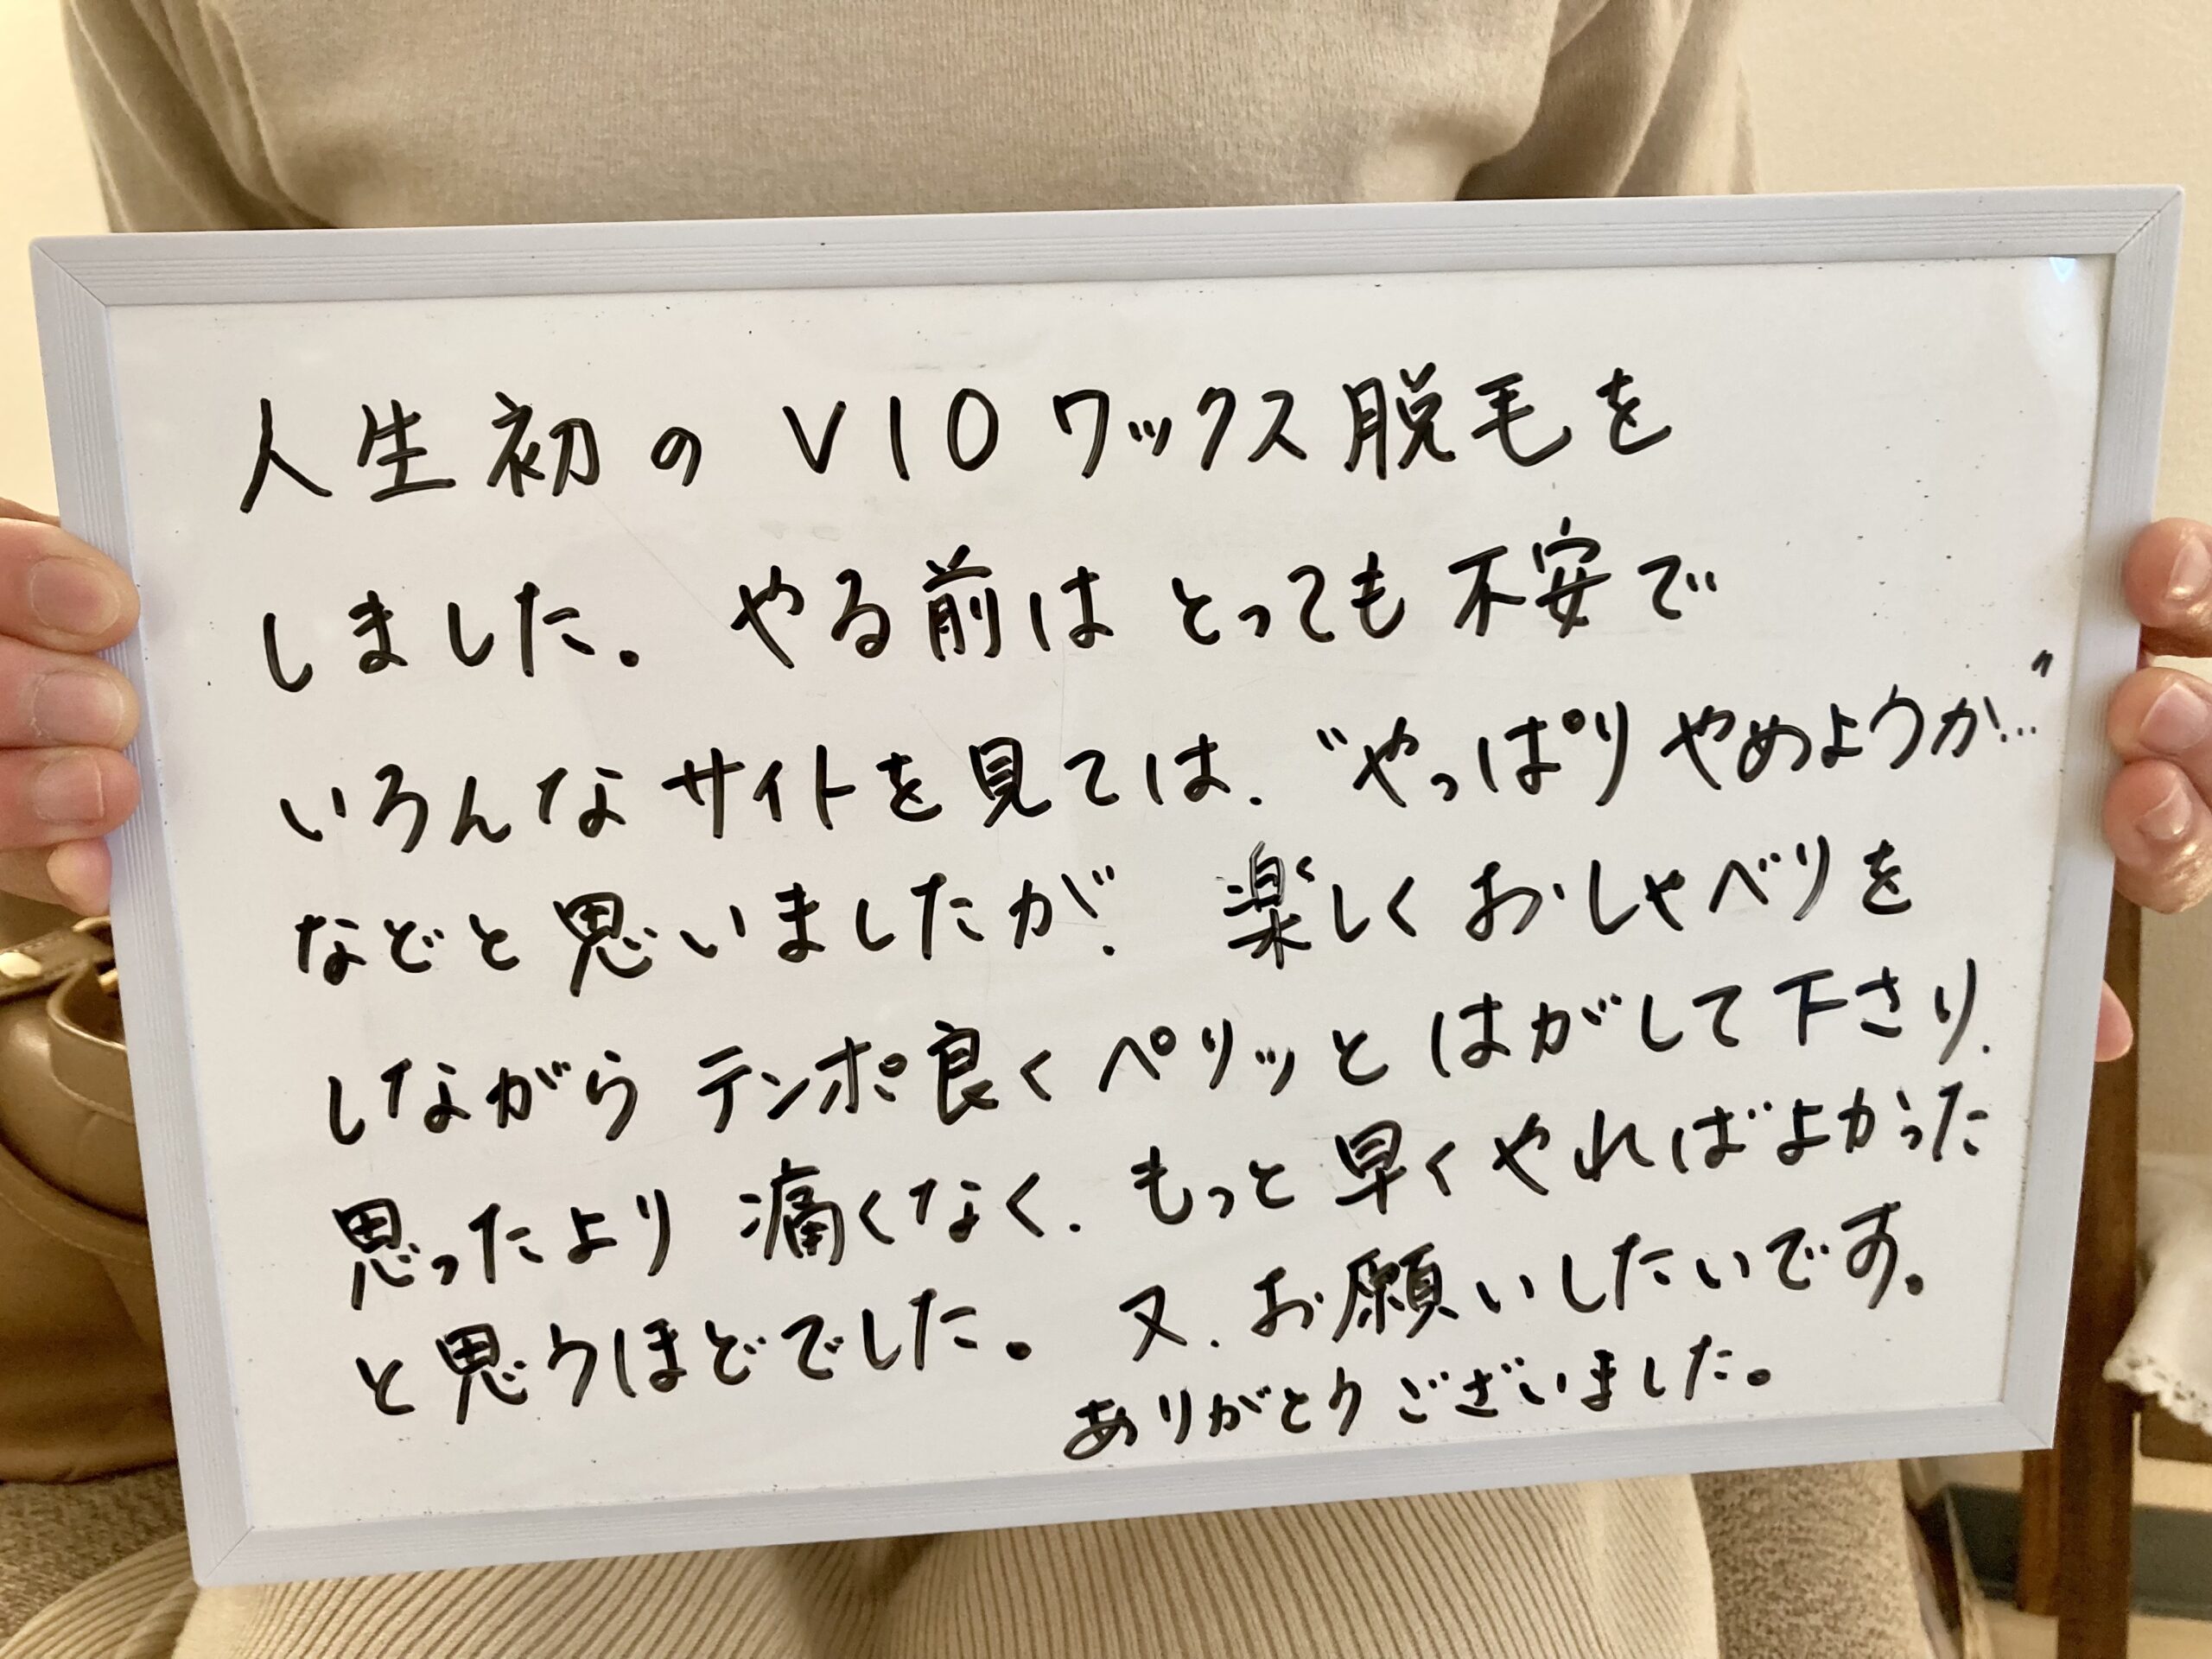 人生初の VIO ワックス脱毛を
しました。 やる前は とっても 不安で
いろんな サイトを見ては、“やっぱり やめようか…”
などと 思いましたが、 楽しく おしゃべりを
しながら テンポ良く ペリッと はがして下さり、
思ったより 痛くなく、もっと 早くやればよかった
と思うほどでした。 又、お願いしたいです。
ありがとうございました。